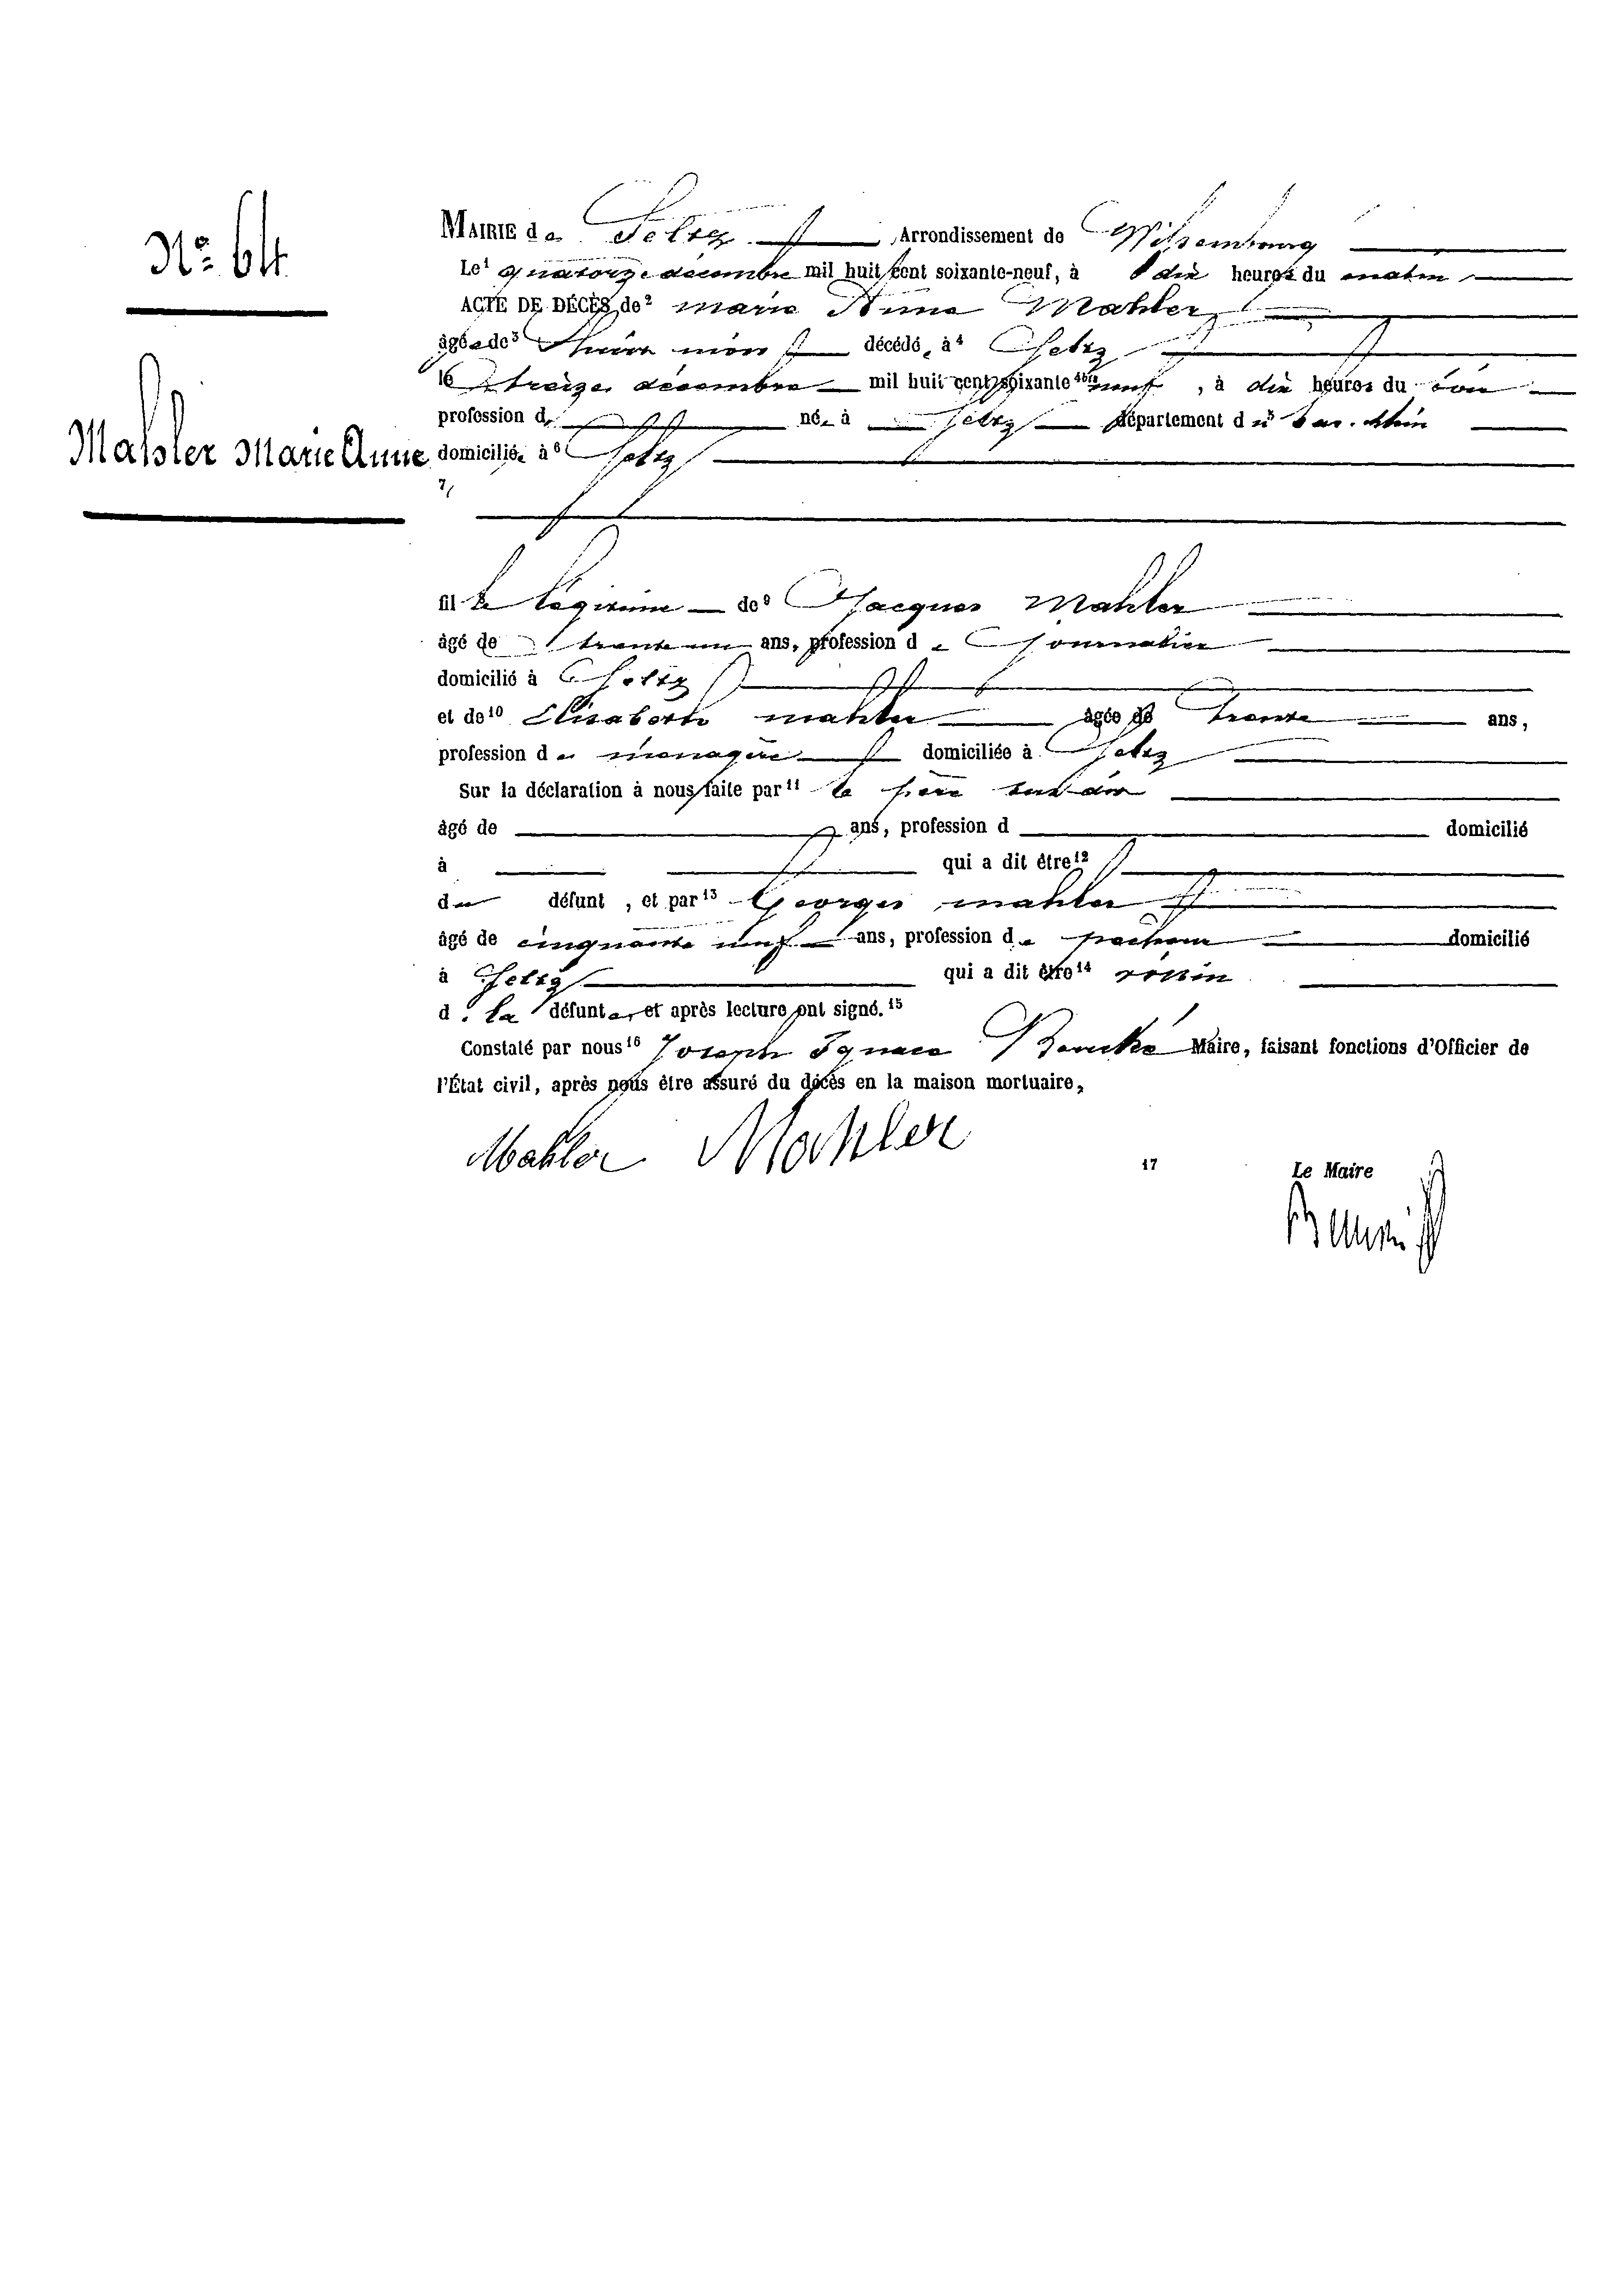 No. 64
Mahler Marie Anne
MAIRIE de Seltz Arrondissement de Wissembourg
Le 1 quatorze décembre mil huit cent soixante-neuf, à dix heures du matin
ACTE DE DÉCÈS de 2 Marie Anne Mahler
âgée de 3 mois décédé, à 4 Seltz
le treize décembre mil huit cent soixante 4bis neuf, à dix heures du soir
profession d née à Seltz département du bas-Rhin
domiciliée à 6 Seltz
7
fille légitime de 8 Jacques Mahler
âgé de trente un ans, profession de journalier
domicilié à Seltz
et de 10 Elisabeth Mahler âgée de trente ans,
profession de menagère domiciliée à Seltz
Sur la déclaration à nous faite par 11 le père sus dit
âgé de ans, profession d domicilié
à qui a dit être 12
d défunt, et par 13 Georges Mahler
âgé de cinquante neuf ans, profession de domicilié
à Seltz qui a dit être 14 voisin
de la défunte, et après lecture ont signé. 15
Constaté par nous 16 Joseph Ignace Maire, faisant fonctions d'Officier de
l'État civil, après nous être assuré du décès en la maison mortuaire,
Mahler Mahler
17 Le Maire